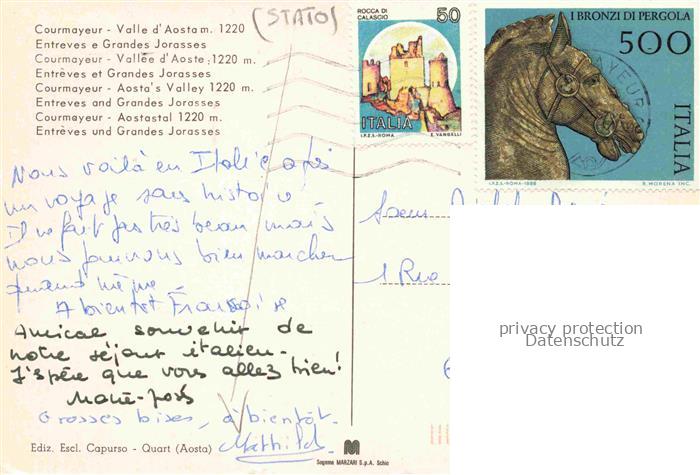 (STATO)
Courmayeur - Valle d'Aosta m. 1220
Entreves e Grandes Jorasses
Courmayeur - Vallée d'Aoste 1220 m.
Entrèves et Grandes Jorasses
Courmayeur - Aosta's Valley 1220 m.
Entreves and Grandes Jorasses
Courmayeur - Aostastal 1220 m.
Entrèves und Grandes Jorasses
ROCCA DI CALASCIO
50
ITALIA
I.P.Z.S.-ROMA E. VANGELLI
I BRONZI DI PERGOLA
500
ITALIA
I.P.Z.S.-ROMA-1988 R. MORENA INC.
Nous voilà en Italie après
un voyage sans histoire
Il ne fait pas très beau mais
nous pouvons bien marcher
quand même.
A bientôt Françoise
Amical souvenir de
notre séjour italien -
J'espère que vous allez bien!
Marie-José
Grosses bises, à bientôt.
Mathilde
1 Rue
privacy protection
Datenschutz
Ediz. Escl. Capurso - Quart (Aosta)
M
Sagema MARZARI S.p.A. Schio